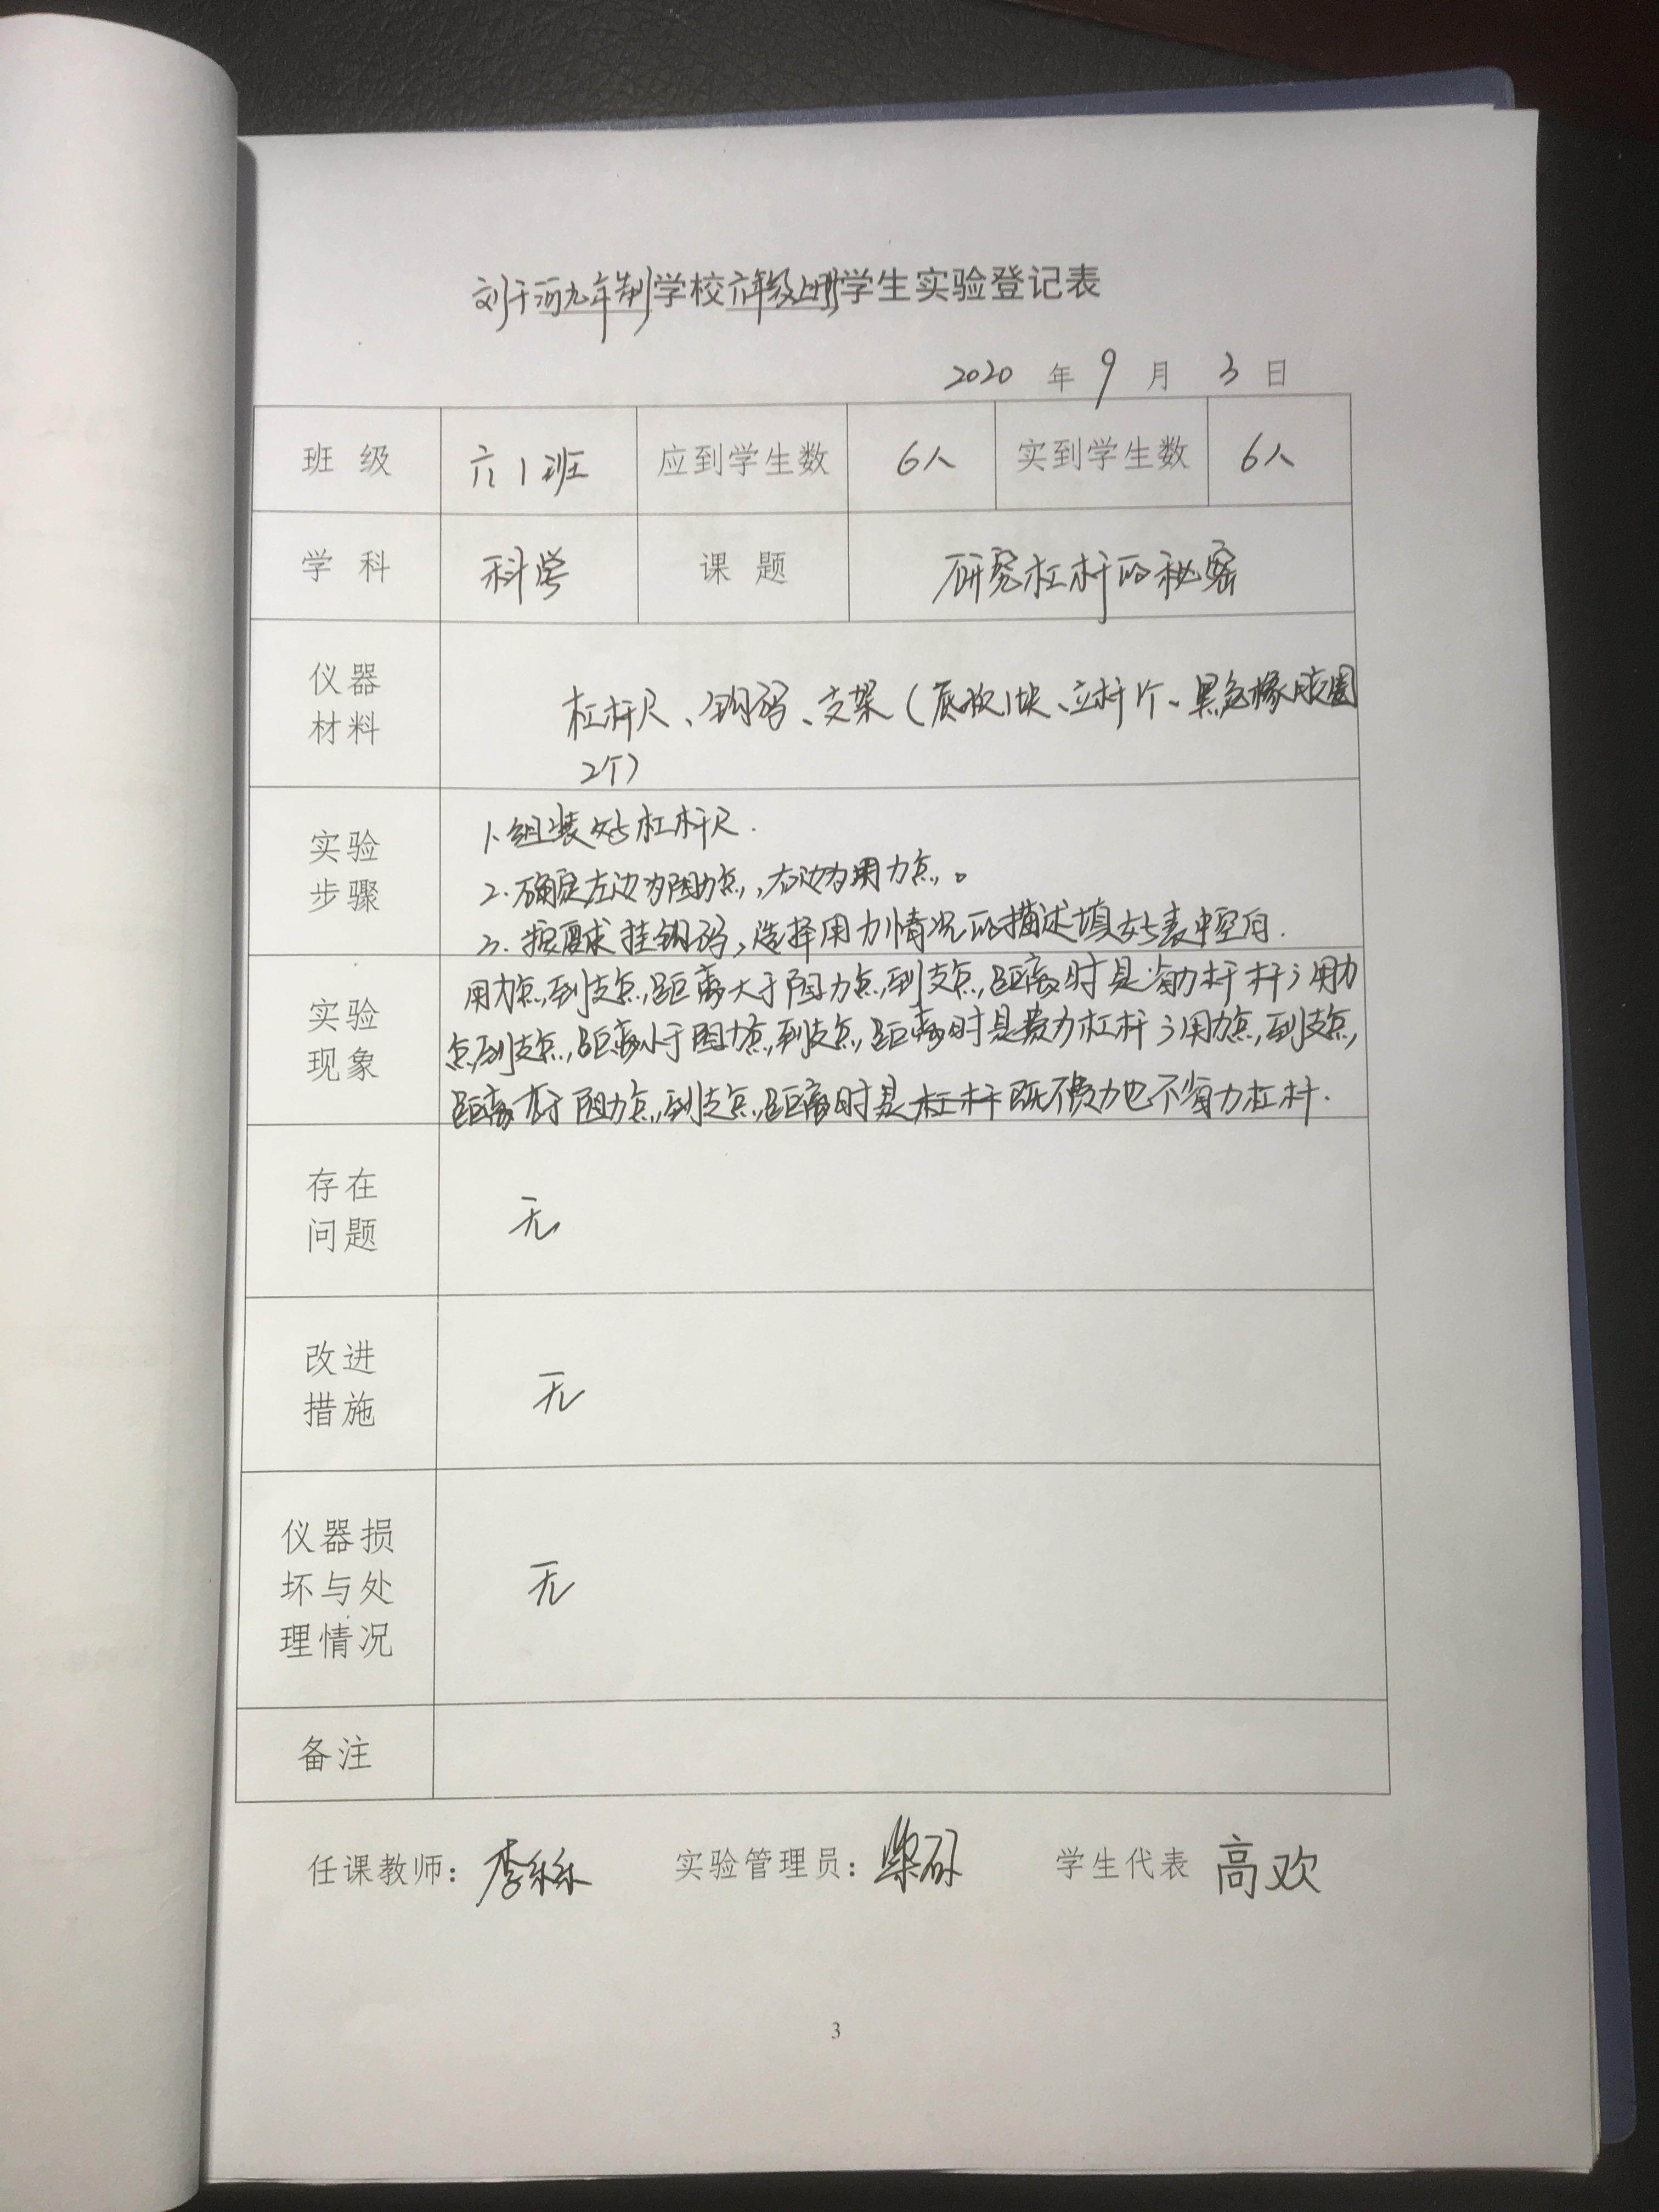 刘干河九年制学校六年级上册学生实验登记表
2020 年 9 月 3 日
班 级 六1班 应到学生数 6人 实到学生数 6人
学 科 科学 课 题 研究杠杆的秘密
仪器
材料
杠杆尺、钩码、支架（底板1块、立杆1个、黑色橡胶圈
2个）
实验
步骤
1.组装好杠杆尺.
2.确定左边为阻力点,右边为用力点。
3.按要求挂钩码,选择用力情况的描述填好表中空白.
实验
现象
用力点到支点距离大于阻力点到支点距离时是省力杆杆;用力
点到支点距离小于阻力点到支点距离时是费力杠杆;用力点到支点
距离等于阻力点到支点距离时是杠杆既不费力也不省力杠杆.
存在
问题
无
改进
措施
无
仪器损
坏与处
理情况
无
备注
任课教师: 李 实验管理员: 柴 学生代表 高欢
3